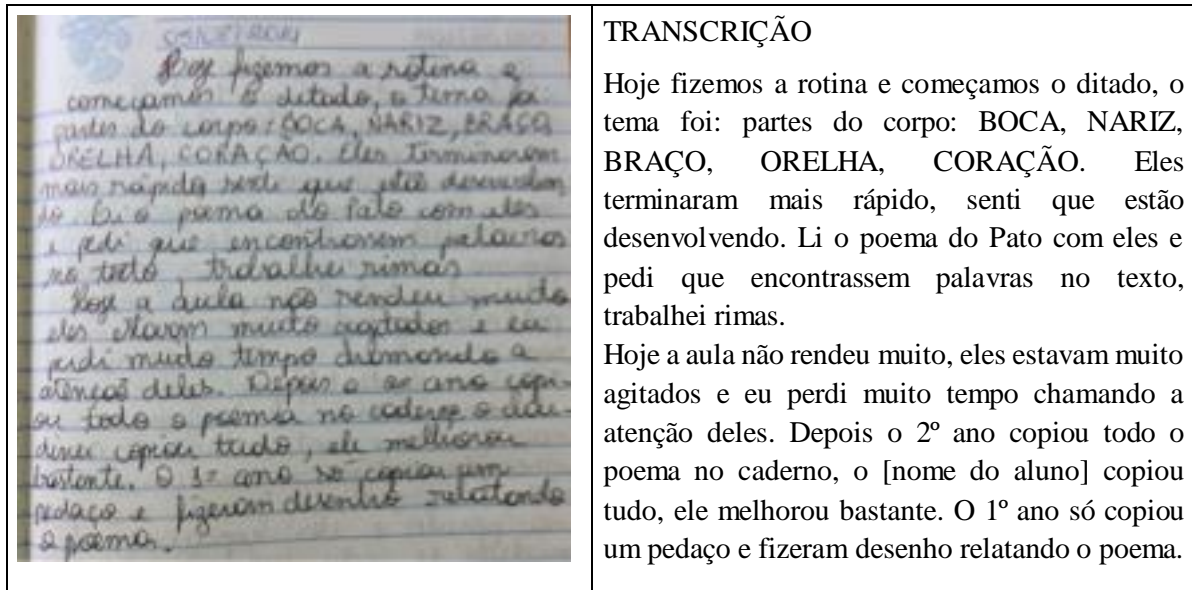 Hoje fizemos a rotina e
começamos o ditado, o tema foi
partes do corpo: BOCA, NARIZ, BRAÇO,
ORELHA, CORAÇÃO. Eles terminaram
mais rápido, senti que estão desenvolven
do Li o poema do Pato com eles
e pedi que encontrassem palavras
no texto, trabalhei rimas
Hoje a aula não rendeu muito
eles estavam muito agitados e eu
perdi muito tempo chamando a
atenção deles. Depois o 2º ano copi-
ou todo o poema no caderno, o
copiou tudo, ele melhorou
bastante. O 1º ano só copiou um
pedaço e fizeram desenho relatando
o poema.
TRANSCRIÇÃO
Hoje fizemos a rotina e começamos o ditado, o
tema foi: partes do corpo: BOCA, NARIZ,
BRAÇO, ORELHA, CORAÇÃO. Eles
terminaram mais rápido, senti que estão
desenvolvendo. Li o poema do Pato com eles e
pedi que encontrassem palavras no texto,
trabalhei rimas.
Hoje a aula não rendeu muito, eles estavam muito
agitados e eu perdi muito tempo chamando a
atenção deles. Depois o 2º ano copiou todo o
poema no caderno, o [nome do aluno] copiou
tudo, ele melhorou bastante. O 1º ano só copiou
um pedaço e fizeram desenho relatando o poema.